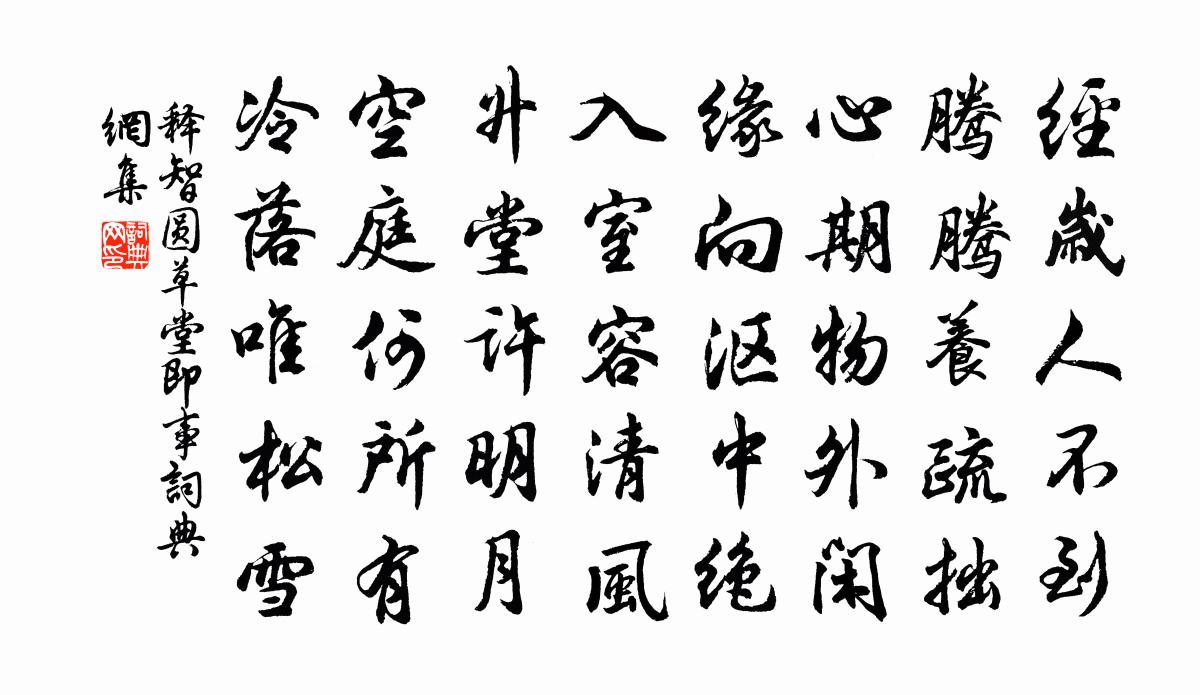 經歲人不到
騰騰養疏拙
心期物外閑
緣向漚中絕
入室容清風
升堂許明月
空庭何所有
冷落唯松雪
释智圆草堂即事詞典
網集
詞典
网印